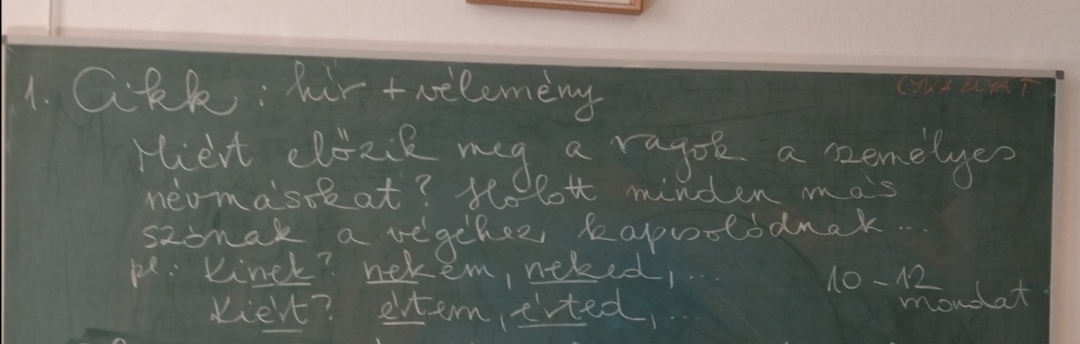 1. Cikk : hír + vélemény
Miért előzik meg a ragok a személyes
névmásokat? Holott minden más
szónak a végéhez kapcsolódnak ...
pl.: Kinek? nekem, neked, ...
Kiért? értem, érted, ...
10 - 12
mondat